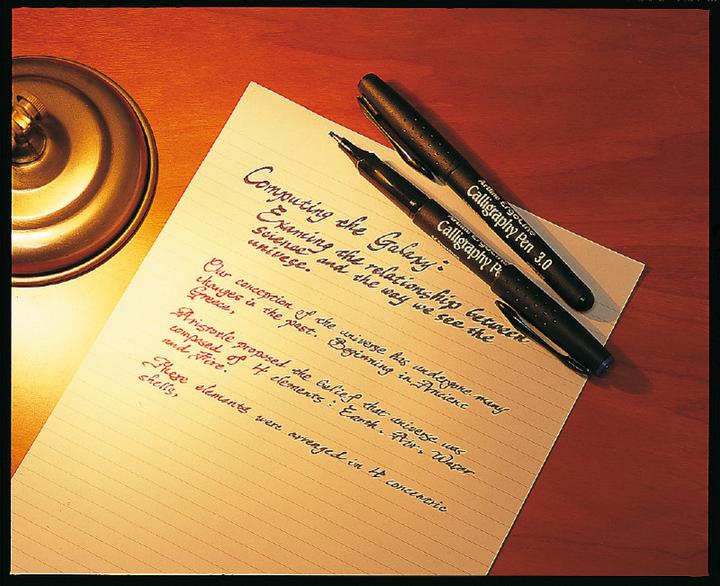 Computing the Galaxy:
Examing the relationship between
science and the way we see the
universe.
Our conception of the universe has undergone many
changes in the past. Beginning in Ancient
Greece,
Aristotle proposed the belief that universe was
composed of 4 elements: Earth, Air, Water
and Fire.
These elements were arranged in 4 concentric
shells,
Artline Ergoline
Calligraphy Pen 3.0
Artline Ergoline
Calligraphy Pe